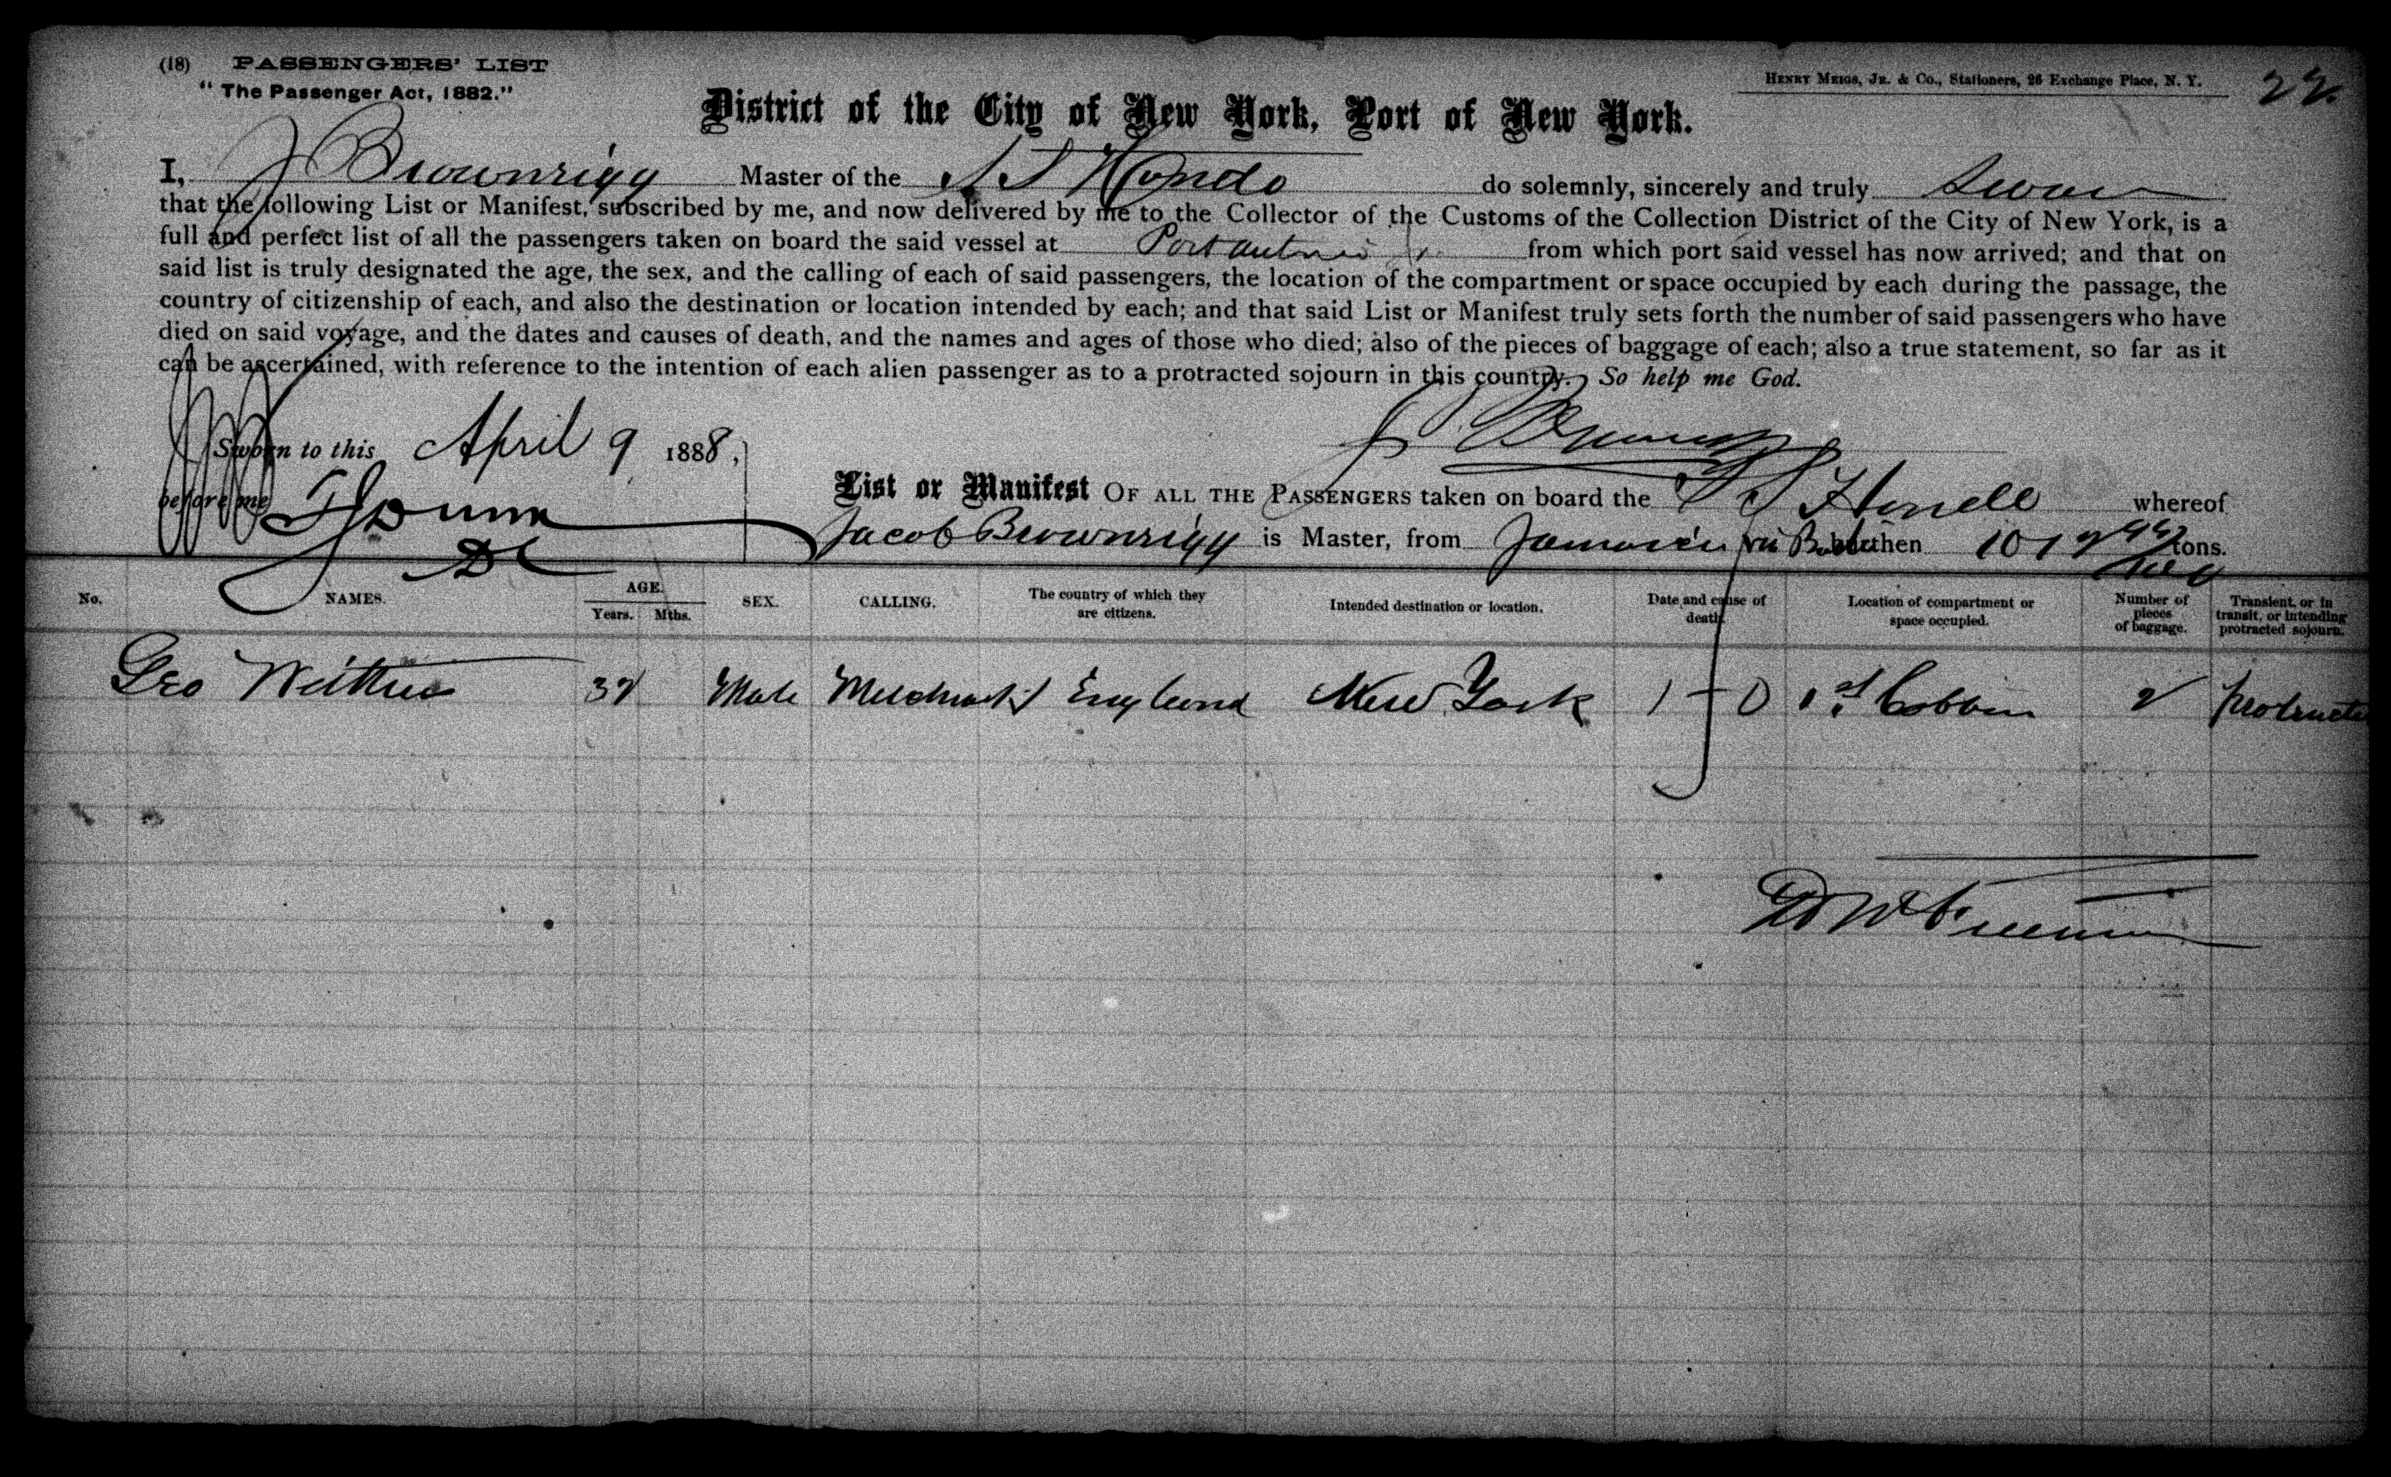 (18) PASSENGERS' LIST
" The Passenger Act, 1882."
HENRY MEIGS, JR. & CO., Stationers, 26 Exchange Place, N. Y.
22
District of the City of New York, Port of New York.
I, J Brownrigg Master of the S S Hondo do solemnly, sincerely and truly Swear
that the following List or Manifest, subscribed by me, and now delivered by me to the Collector of the Customs of the Collection District of the City of New York, is a
full and perfect list of all the passengers taken on board the said vessel at Port antonio from which port said vessel has now arrived; and that on
said list is truly designated the age, the sex, and the calling of each of said passengers, the location of the compartment or space occupied by each during the passage, the
country of citizenship of each, and also the destination or location intended by each; and that said List or Manifest truly sets forth the number of said passengers who have
died on said voyage, and the dates and causes of death, and the names and ages of those who died; also of the pieces of baggage of each; also a true statement, so far as it
can be ascertained, with reference to the intention of each alien passenger as to a protracted sojourn in this country. So help me God.
Sworn to this April 9 1888,
before me
J Brownrigg
List or Manifest OF ALL THE PASSENGERS taken on board the S S whereof
Jacob Brownrigg is Master, from Jamaica burthen tons.
No. NAMES. AGE. Years. Mths. SEX. CALLING. The country of which they are citizens. Intended destination or location. Date and cause of death. Location of compartment or space occupied. Number of pieces of baggage. Transient, or in transit, or intending protracted sojourn.
Geo 32 Male Merchant England New York 1 - 0 1st Cabbin 2 protracted